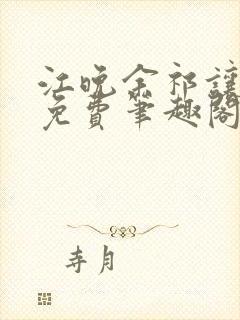 江晚余祁让
免费笔趣阁
寺月